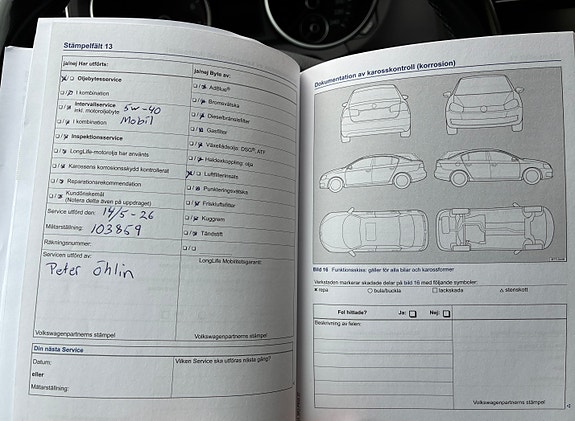 Stämpelfält 13
ja/nej Har utförts:
Oljebytesservice
I kombination
Intervallservice 5w-40
inkl. motoroljebyte
I kombination Mobil
Inspektionsservice
LongLife-motorolja har använts
Karossens korrosionsskydd kontrollerat
Reparationsrekommendation
Kundönskemål
(Notera detta även på uppdraget)
Service utförd den: 14/5-26
Mätarställning: 103859
Räkningsnummer:
Servicen utförd av:
Peter Öhlin
Volkswagenpartnerns stämpel
ja/nej Byte av:
AdBlue®
Bromsvätska
Dieselbränslefilter
Gasfilter
Växellådsolja: DSG®, ATF
Haldexkoppling: olja
Luftfilterinsats
Punkteringsvätska
Friskluftsfilter
Kuggrem
Tändstift
LongLife Mobilitetsgaranti:
Volkswagenpartnerns stämpel
Din nästa Service
Datum:
eller
Mätarställning:
Vilken Service ska utföras nästa gång?
Dokumentation av karosskontroll (korrosion)
Bild 16 Funktionsskiss: gäller för alla bilar och karossformer
Verkstaden markerar skadade delar på bild 16 med följande symboler:
× repa ○ bula/buckla □ lackskada △ stenskott
Fel hittade? Ja: Nej:
Beskrivning av felen:
Volkswagenpartnerns stämpel